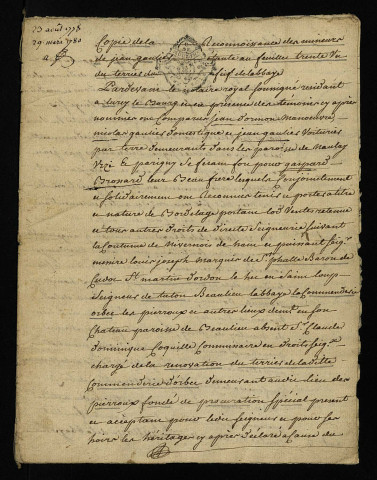 23 août 1778
29 mars 1780
Copie de la Reconnoissance des mineurs
de jean gaulier faite au feuillet trente
du terrier du fief de labbaye
Pardevant le notaire royal soussigné residant
a lurcy le Bourg et en presence des temoins cy apres
nommes ont Comparus jean Dormon Manoeuvre
nicolas gaulier domestique et jean gaulier Voiturier
par terre demeurants dans les paroisse de
et parigny se fesant fort pour gaspard
Brossard leur Beau frere lequels Conjointement
et solidairement ont Reconnu tenir et porter a titre
et nature de Bordelage portant lods Ventes retenue
et tous autres Droits de directe Seigneurie suivant
la Coutume de Nivernois de haut et puissant seigr
messire louis joseph Marquis de St phalle Baron de
Cudot St martin Dordon le lieu en Saint loup
Seigneur de Beaulieu labbaye la Commanderie
Dorbec les pierroux et autres lieux demt en son
Chateau paroisse de Beaulieu absent Sr Claude
Dominique Coquille Commissaire en Droits seigx
chargé de la Renovation du terrier de la ditte
Commanderie d'orbec demeurant audit lieu des
pierroux fondé de procuration spécial present
et acceptant pour ledit Seigneur et pour ses
hoirs les heritages cy apres declaré a Cause du